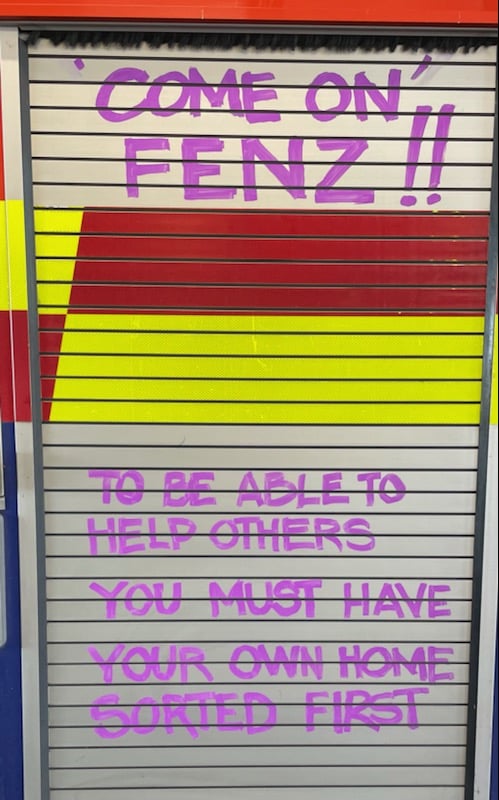 'COME ON'
FENZ!!
TO BE ABLE TO
HELP OTHERS
YOU MUST HAVE
YOUR OWN HOME
SORTED FIRST